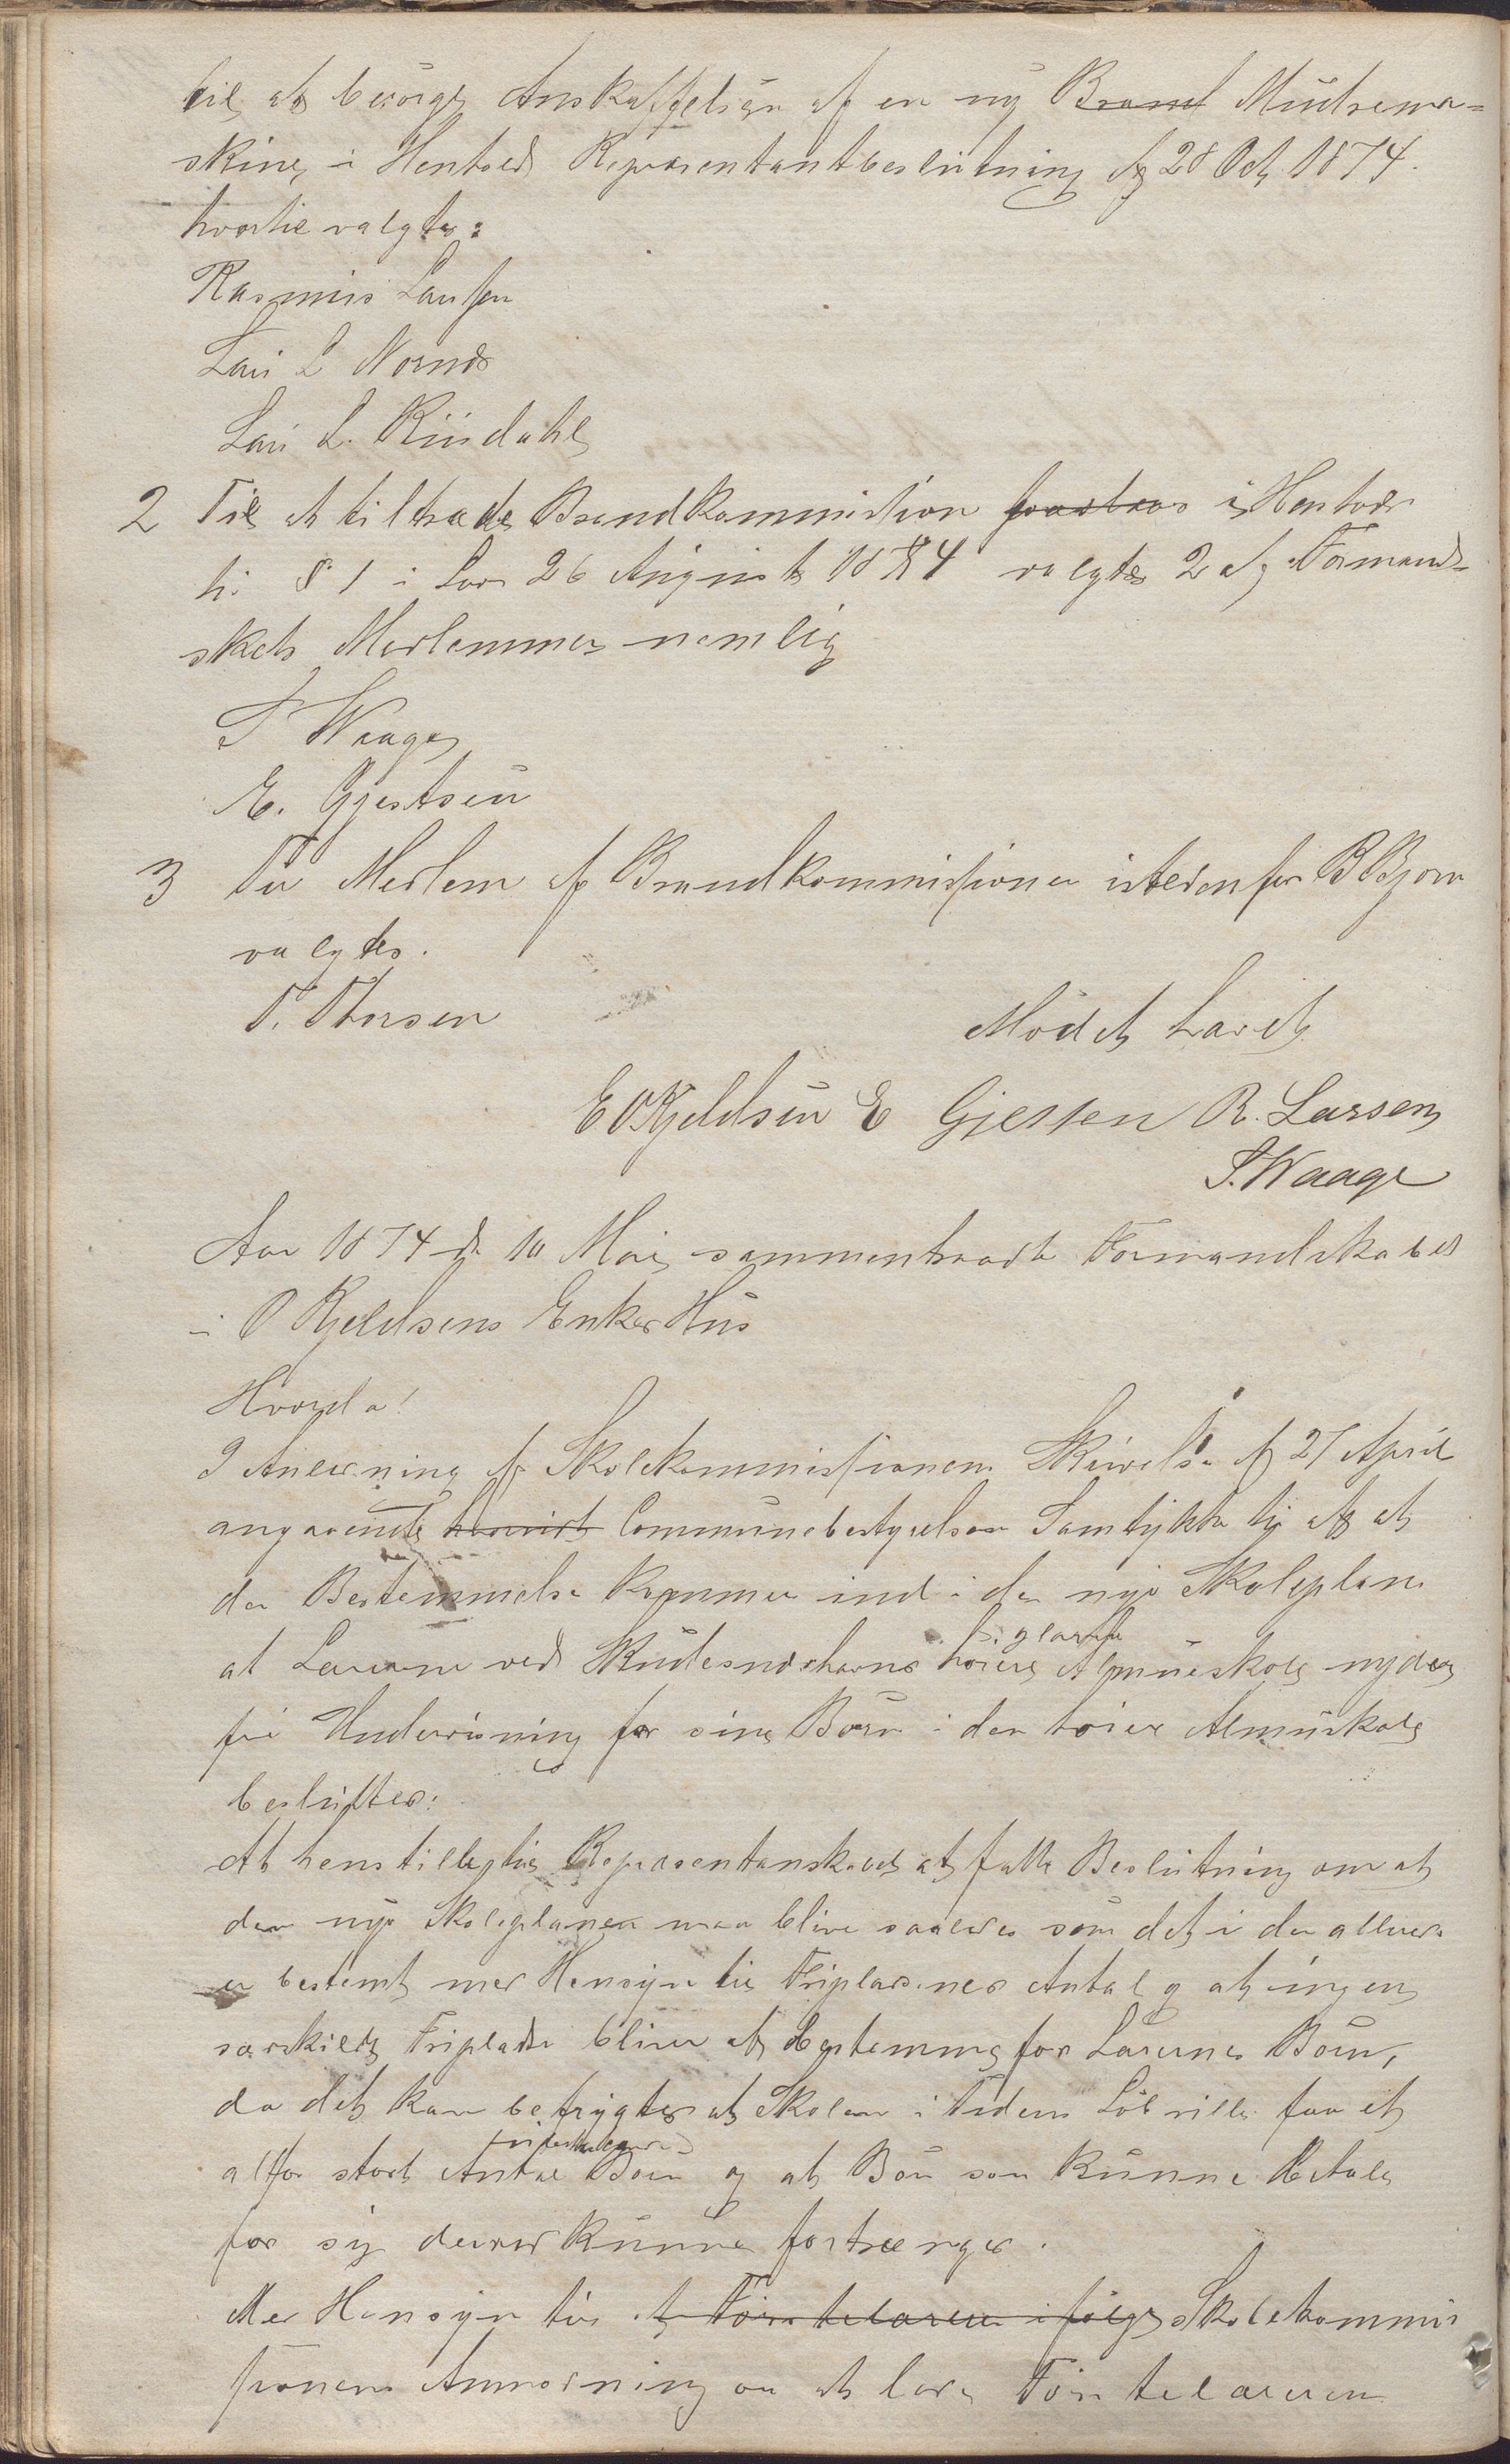 til at besörge Anskaffelsen af en ny Brand Mudrema-
skine i Henhold Repræsentantbeslutning af 28 Oct 1874.
hvortil valgtes:
Rasmus Laursen
Lars L Nornes
Lars L. Risdahl
2 Til at tiltræde Brandkommission foretoges i Henhold
til § 1 i Lov 26 August 1874 valgtes 2 af Formand-
skets Medlemmer nemlig
S Waage
E. Gjestsen
3 Til Medlem af Brandkommissionen istedenfor B Bjorn
valgtes.
T. Thorsen
Mödet hævet
E O Kjeldsen E Gjessen R. Larsen
S. Waage
Aar 1874 d 10 Mai sammentraadte Formandskabet
i O Kjeldsens Enkes Hus
Hvorda!
I Anledning af Skolekommissionens Skrivelse af 27 April
angaaende Communebestyrelsen Samtykke til at
den Bestemmelse kommer ind i den nye Skoleplan
at Lærerne ved Skudesneshavns höiere Almueskole nyder
fri Undervisning for sine Börn i den höiere Almueskole
besluttes:
At henstille til Repræsentanskabet at fatte Beslutning om at
den nye Skoleplanen maa blive saaledes som det i den allerede
er bestemt med Hensyn til Fripladsenes Antal og at ingen
særskilt Friplads bliver at bestemme for Lærernes Börn,
da det kan befrygtes at Skolen i Tidens Löb vilde faa et
altfor stort Antal Börn og at Börn som kunne betale
for sig derved kunne fortrænges.
Med Hensyn til at Förstelæreren ifölge Skolekommis
sionens Anmodning om at lade Förstelæreren